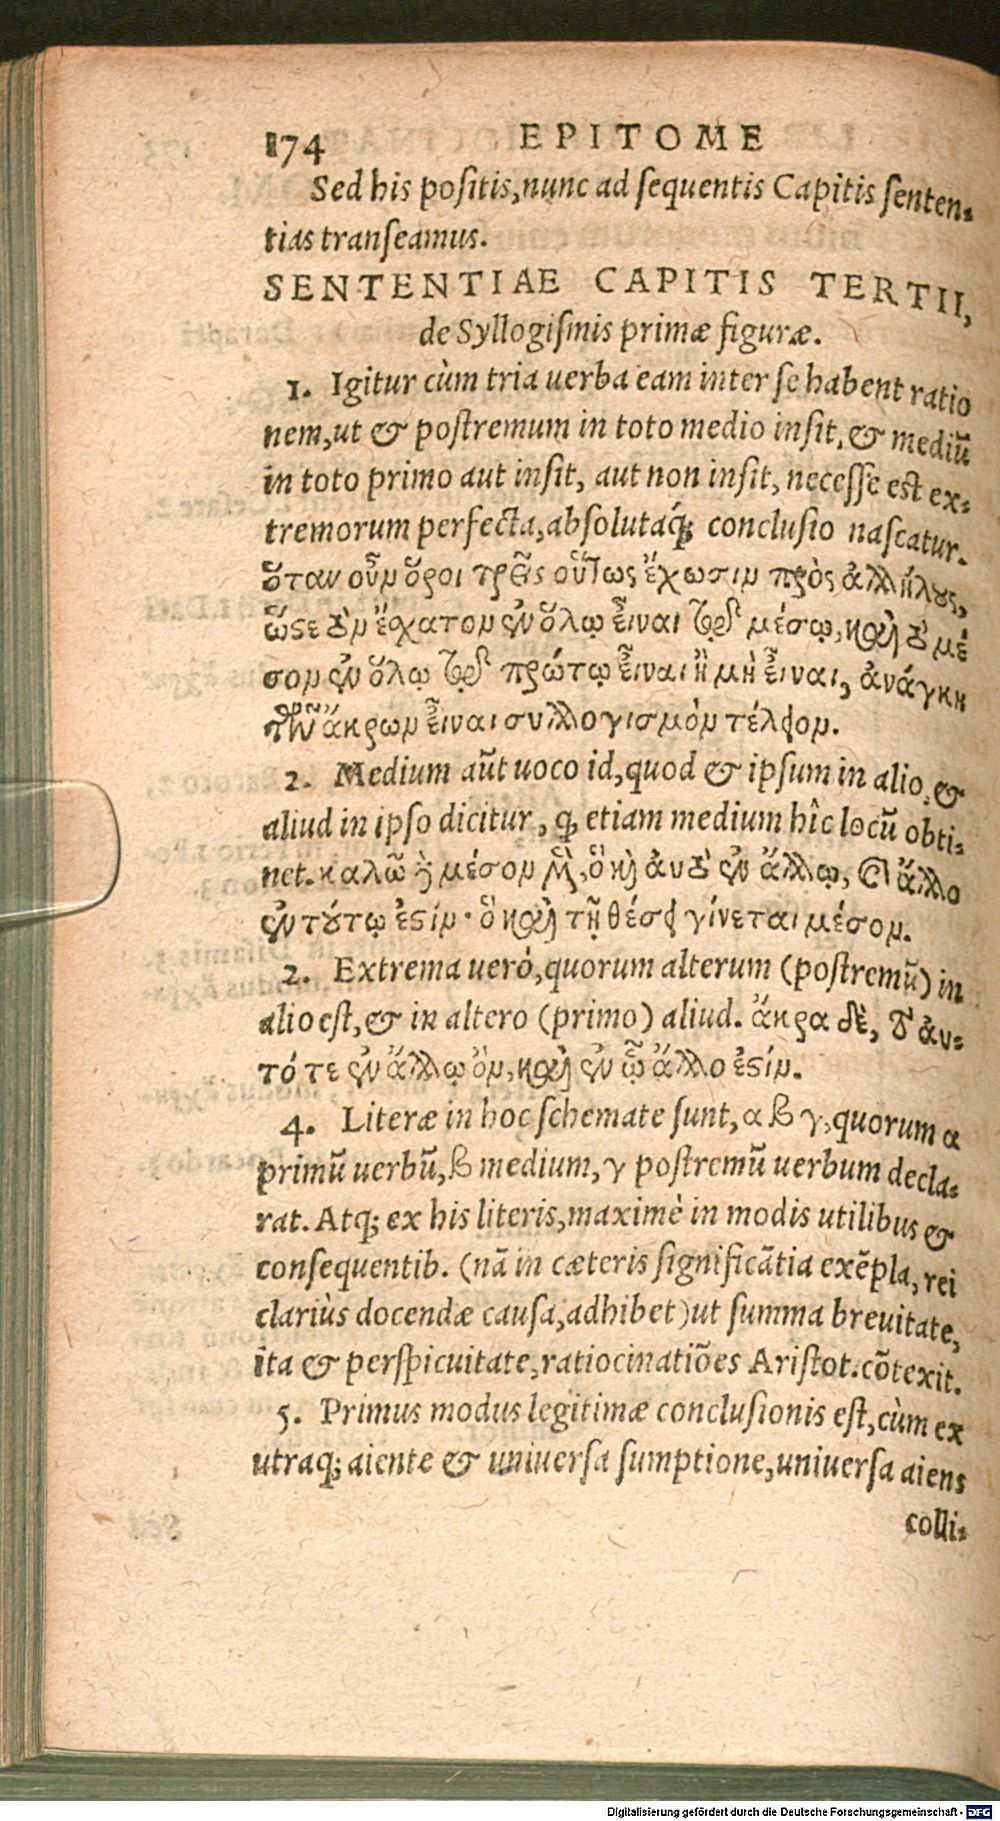 174 EPITOME
Sed his positis, nunc ad sequentis Capitis senten-
tias transeamus.
SENTENTIAE CAPITIS TERTII,
de Syllogismis primæ figuræ.
1. Igitur cùm tria uerba eam inter se habent ratio
nem, ut & postremum in toto medio insit, & mediū
in toto primo aut insit, aut non insit, necesse est ex-
tremorum perfecta, absolutaq́; conclusio nascatur.
ὅταν οὖν ὅροι τρεῖς οὕτως ἔχωσιν πρὸς ἀλλήλους,
ὥστε τὸν ἔσχατον ἐν ὅλῳ εἶναι τῷ μέσῳ, καὶ τὸν μέ
σον ἐν ὅλῳ τῷ πρώτῳ εἶναι ἢ μὴ εἶναι, ἀνάγκη
τῶν ἄκρων εἶναι συλλογισμὸν τέλειον.
2. Medium aūt uoco id, quod & ipsum in alio, &
aliud in ipso dicitur, q̣ etiam medium hîc locū obti-
net. καλῶ δὲ μέσον μὲν, ὃ καὶ αὐτὸ ἐν ἄλλῳ, καὶ ἄλλο
ἐν τούτῳ ἐστίν· ὃ καὶ τῇ θέσει γίνεται μέσον.
2. Extrema uerò, quorum alterum (postremū) in
alio est, & in altero (primo) aliud. ἄκρα δὲ, τὸ αὐ-
τό τε ἐν ἄλλῳ ὂν, καὶ ἐν ᾧ ἄλλο ἐστίν.
4. Literæ in hoc schemate sunt, α β γ, quorum α
primū uerbū, β medium, γ postremū uerbum decla-
rat. Atq; ex his literis, maximè in modis utilibus &
consequentib. (nā in cæteris significātia exēpla, rei
clariùs docendæ causa, adhibet) ut summa breuitate,
ita & perspicuitate, ratiocinatiōes Aristot. cōtexit.
5. Primus modus legitimæ conclusionis est, cùm ex
utraq; aiente & uniuersa sumptione, uniuersa aiens
colli-
Digitalisierung gefördert durch die Deutsche Forschungsgemeinschaft - DFG